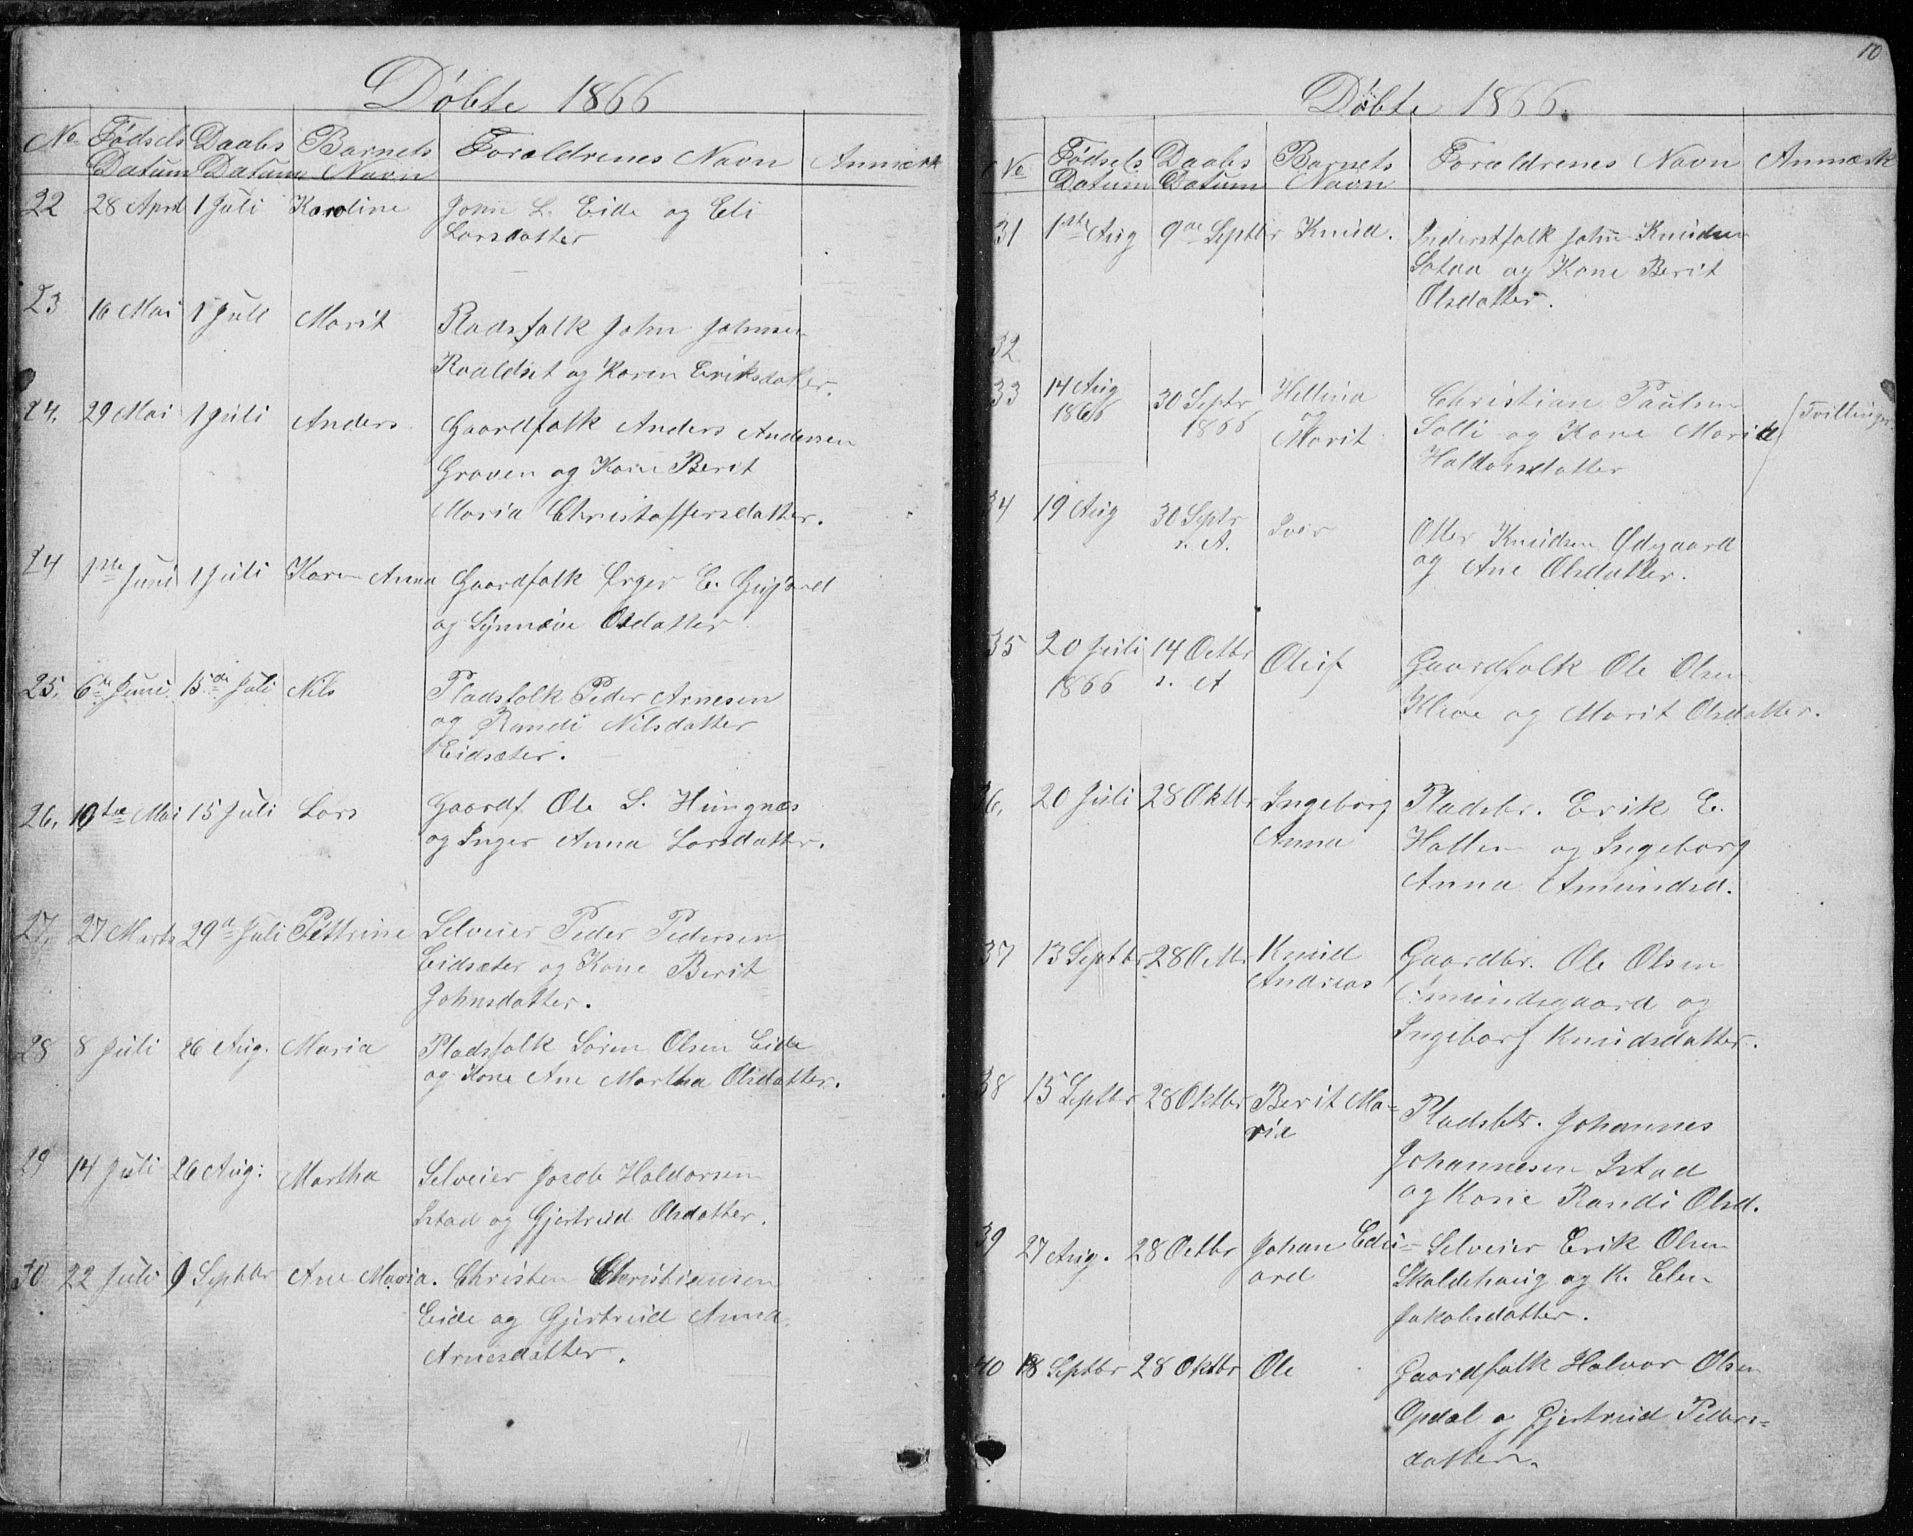 Døbte 1866
No Fødsels Datum Daabs Datum Barnets Navn Forældrenes Navn Anmærk
22 28 April 1 Juli Karoline John L. Eide og Eli
Larsdatter
23 16 Mai 1 Juli Marit Pladsfolk John Johnsen
Roaldset og Karen Eriksdatter.
24. 29 Mai 1 Juli Anders Gaardfolk Anders Andersen
Groven og Kone Berit
Maria Christoffersdatter.
24 1ste Juni 1 Juli Karen Anna Gaardfolk Ørger E.
og Synnøve Olsdatter
25. 6te Juni 15de Juli Nils Pladsfolk Peder Arnesen
og Randi Nilsdatter
Eidsæter.
26. 10de Mai 15 Juli Lars Gaardf Ole S. Hungnæs
og Inger Anna Larsdatter.
27. 27 Marts 29de Juli Pettrine Selveier Peder Pedersen
Eidsæter og Kone Berit
Johnsdatter.
28 8 Juli 26 Aug. Maria Pladsfolk Søren Olsen Eide
og Kone Ane Martha Olsdatter.
29 14 Juli 26 Aug: Martha Selveier Jacob Haldorsen
Istad og Gjertrud Olsdatter.
30 22 Juli 9 Septbr Ane Maria. Christen Christiansen
Eide og Gjertrud Anna
Arnesdatter.
10
Døbte 1866.
No Fødsels Datum Daabs Datum Barnets Navn Forældrenes Navn Anmærk
31 1ste Aug 9de Septbr Knud. Inderstfolk John Knudsen
og Kone Berit
Olsdatter.
32
33 14 Aug 30 Septr Hellina Christian Paulsen
1866 1866 & Marit Solli og Kone Marit Tvillinger.
Haldorsdatter
34 19 Aug 30 Septr Iver Otter Knudsen Ødegaard
s. A. og Ane Olsdatter.
35 20 Juli 14 Octbr Oluf Gaardfolk Ole Olsen
1866 s. A Kleve og Marit Olsdatter.
36. 20 Juli 28 Oktbr Ingeborg Pladsbr. Erik E.
Anna Hatlen og Ingeborg
Anna Amundsd.
37 13 Septbr 28 Octbr Knud Gaardbr. Ole Olsen
Andreas Amundsgaard og
Ingeborg Knudsdatter.
38 15 Septbr 28 Oktbr Berit Ma=
rie Pladsbr. Johannes
Johannesen Istad
og Kone Randi Olsd.
39 27 Aug. 28 Octbr Johan Edu= Selveier Erik Olsen
ard Skaldehaug og K. Elen
Jakobsdatter.
40 18 Septbr 28 Oktbr Ole Gaardfolk Halvor Olsen
Opdal og Gjertrud Peders=
datter.